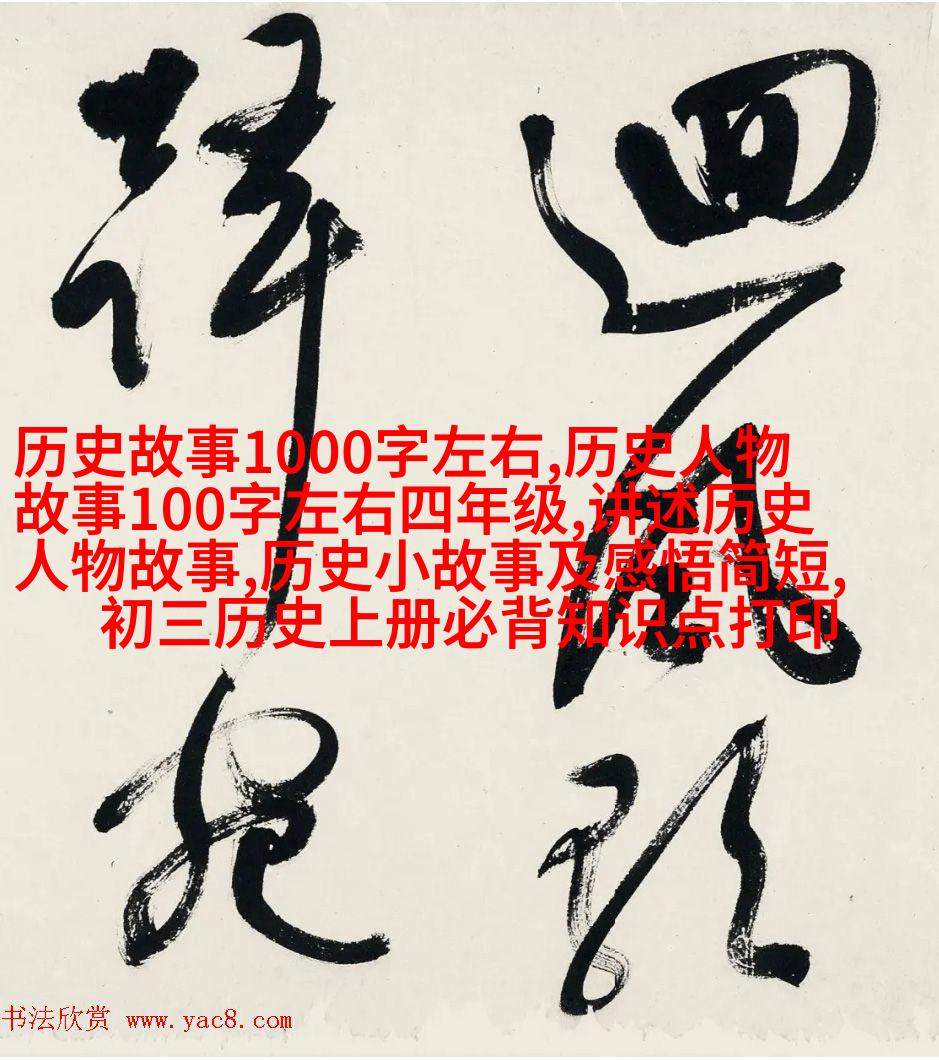 迴風
历史故事1000字左右,历史人物
故事100字左右四年级,讲述历史
人物故事,历史小故事及感悟简短,
初三历史上册必背知识点打印
书法欣赏 www.yac8.com